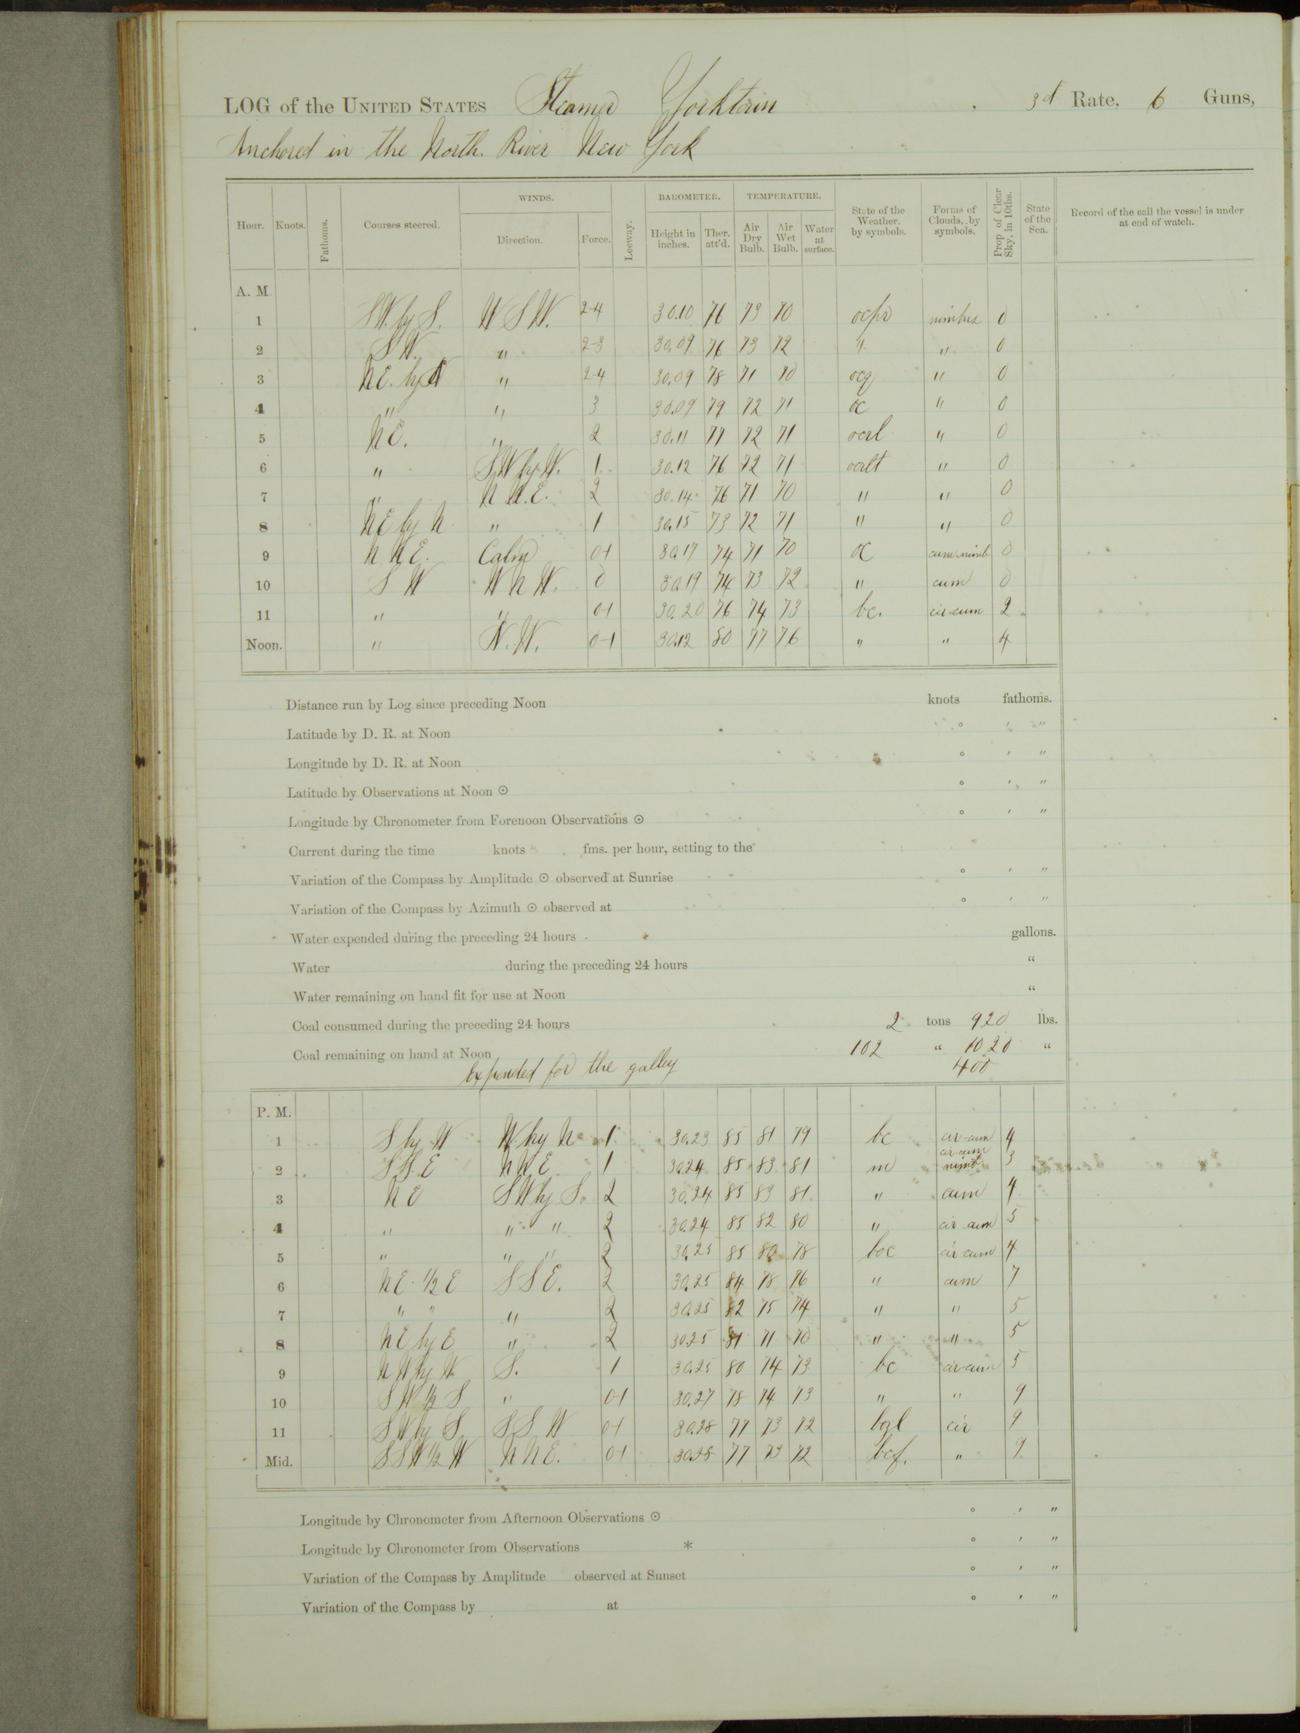 LOG of the UNITED STATES Steamer Yorktown 3d Rate, 6 Guns,
Anchored in the North River New York
Hour. Knots. Fathoms. Courses steered. WINDS. Direction. Force. Leeway. BAROMETER. Height in inches. Ther. att'd. TEMPERATURE. Air Dry Bulb. Air Wet Bulb. Water at surface. State of the Weather. by symbols. Forms of Clouds, by symbols. Prop of Clear Sky, in 10ths. State of the Sea. Record of the sail the vessel is under at end of watch.
A. M.
1 SW. by S. W S W. 2-4 30.10 76 73 70 nimbus 0
2 S W. " 2-3 30.09 76 73 72 " " 0
3 N E. by N " 2-4 30.09 78 71 70 ocq " 0
4 " " 3 30.09 79 72 71 oc " 0
5 N E. " 2 30.11 77 72 71 ocrl " 0
6 " SW by W. 1 30.12 76 72 71 ocrlt " 0
7 " N N.E. 2 30.14 76 71 70 " " 0
8 N E by N " 1 30.15 73 72 71 " " 0
9 N N E. Calm 0-1 30.17 74 71 70 oc cum-nimb 0
10 S W W N W. 0 30.19 74 73 72 " cum 0
11 " " 0-1 30.20 76 74 73 bc. cir-cum 2
Noon. " N. W. 0-1 30.12 80 77 76 " " 4
Distance run by Log since preceding Noon knots fathoms.
Latitude by D. R. at Noon ° ' "
Longitude by D. R. at Noon ° ' "
Latitude by Observations at Noon ☉ ° ' "
Longitude by Chronometer from Forenoon Observations ☉ ° ' "
Current during the time knots fms. per hour, setting to the
Variation of the Compass by Amplitude ☉ observed at Sunrise ° ' "
Variation of the Compass by Azimuth ☉ observed at ° ' "
Water expended during the preceding 24 hours gallons.
Water during the preceding 24 hours "
Water remaining on hand fit for use at Noon "
Coal consumed during the preceding 24 hours 2 tons 920 lbs.
Coal remaining on hand at Noon 102 " 1020 "
Expended for the galley 400
P. M.
1 S by W W by N 1 30.23 85 81 79 bc cir-cum 4
2 S S E N N E 1 30.24 85 83 81 m cir cum nimb 3
3 N E SW by S. 2 30.24 85 83 81 " cum 4
4 " " " 2 30.24 85 82 80 " cir cum 5
5 " " " 2 30.25 85 80 78 boc cir cum 4
6 N E 1/2 E S S E. 2 30.25 84 78 76 " cum 7
7 " " " 2 30.25 82 75 74 " " 5
8 N E by E " 2 30.25 81 71 70 " " 5
9 N W by W S. 1 30.25 80 74 73 bc cir-cum 5
10 S W 1/2 S " 0-1 30.27 78 74 73 " " 9
11 S W by S. S S W 0-1 30.28 77 73 72 cir 9
Mid. S S W 1/2 W N N E. 0-1 30.28 77 73 72 bcf. " 9
Longitude by Chronometer from Afternoon Observations ☉ ° ' "
Longitude by Chronometer from Observations * ° ' "
Variation of the Compass by Amplitude observed at Sunset ° ' "
Variation of the Compass by at ° ' "